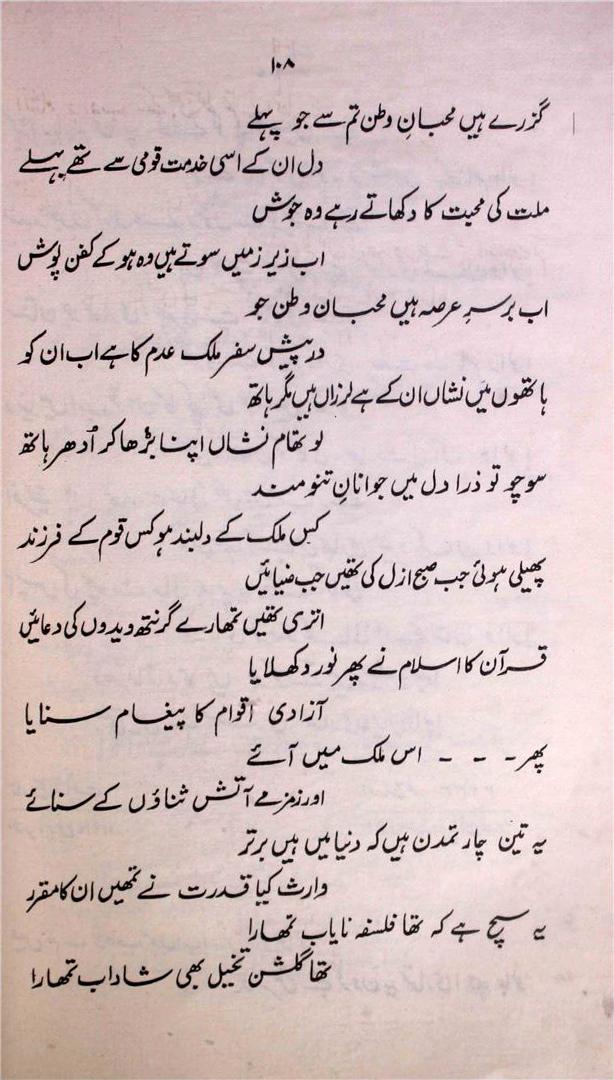 ۱۰۸
گزرے ہیں محبانِ وطن تم سے جو پہلے
دل ان کے اسی خدمت قومی سے تھے بہلے
ملت کی محبت کا دکھاتے رہے وہ جوش
اب زیر زمیں سوتے ہیں وہ ہو کے کفن پوش
اب برسرِ عرصہ ہیں محبان وطن جو
درپیش سفر ملک عدم کا ہے اب ان کو
ہاتھوں میں نشاں ان کے ہے لرزاں ہیں مگر ہاتھ
لو تھام نشاں اپنا بڑھا کر اُدھر ہاتھ
سوچو تو ذرا دل میں جوانانِ تنومند
کس ملک کے دلبند ہو کس قوم کے فرزند
پھیلی ہوئی جب صبح ازل کی تھیں جب ضیائیں
اتری تھیں تمھارے گرنتھ ویدوں کی دعائیں
قرآن کا اسلام نے پھر نور دکھلایا
آزادی اقوام کا پیغام سنایا
پھر - - - - اس ملک میں آئے
اور زمزمے آتش ثناؤں کے سنائے
یہ تین چار تمدن ہیں کہ دنیا میں ہیں برتر
وارث کیا قدرت نے تمھیں ان کا مقرر
یہ سچ ہے کہ تھا فلسفہ نایاب تمھارا
تھا گلشن تخیل بھی شاداب تمھارا